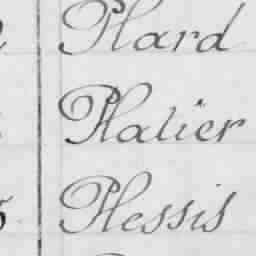 Plard
Platier
Plessis